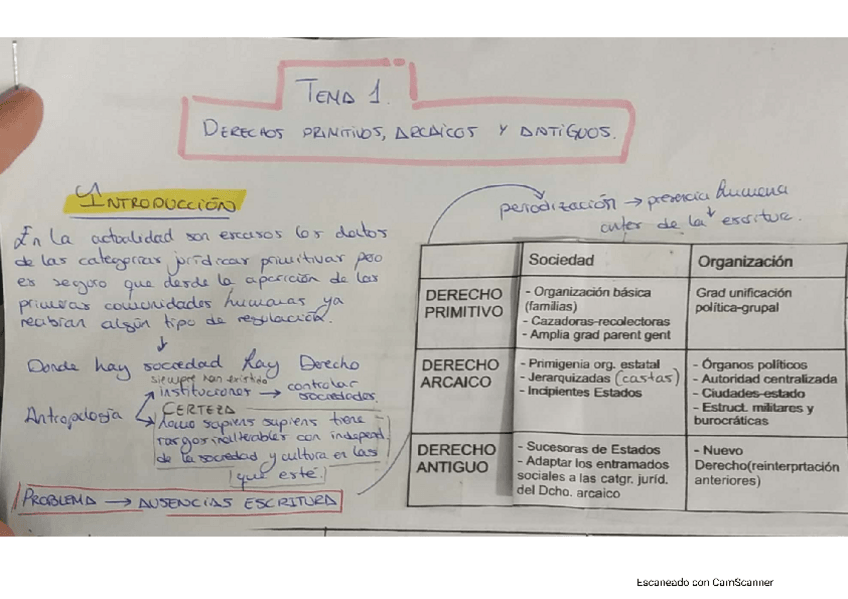 TEMA 1.
DERECHOS PRIMITIVOS, ARCAICOS Y ANTIGUOS.
INTRODUCCIÓN
En la actualidad son escasos los datos
de las categorías jurídicas primitivas pero
es seguro que desde la aparición de las
primeras comunidades humanas ya
recibían algún tipo de regulación.
Donde hay sociedad hay Derecho
siempre han existido
Antropología
instituciones → controlar
sociedades.
CERTEZA
Homo sapiens sapiens tiene
rasgos inalterables con independ.
de la sociedad y cultura en las
que esté.
PROBLEMA → AUSENCIAS ESCRITURA
periodización → presencia humana
antes de la escritura.
Sociedad Organización
DERECHO PRIMITIVO
- Organización básica
(familias)
- Cazadoras-recolectoras
- Amplia grad parent gent
Grad unificación
política-grupal
DERECHO ARCAICO
- Primigenia org. estatal
- Jerarquizadas (castas)
- Incipientes Estados
- Órganos políticos
- Autoridad centralizada
- Ciudades-estado
- Estruct. militares y
burocráticas
DERECHO ANTIGUO
- Sucesoras de Estados
- Adaptar los entramados
sociales a las catgr. juríd.
del Dcho. arcaico
- Nuevo
Derecho(reinterprtación
anteriores)
Escaneado con CamScanner